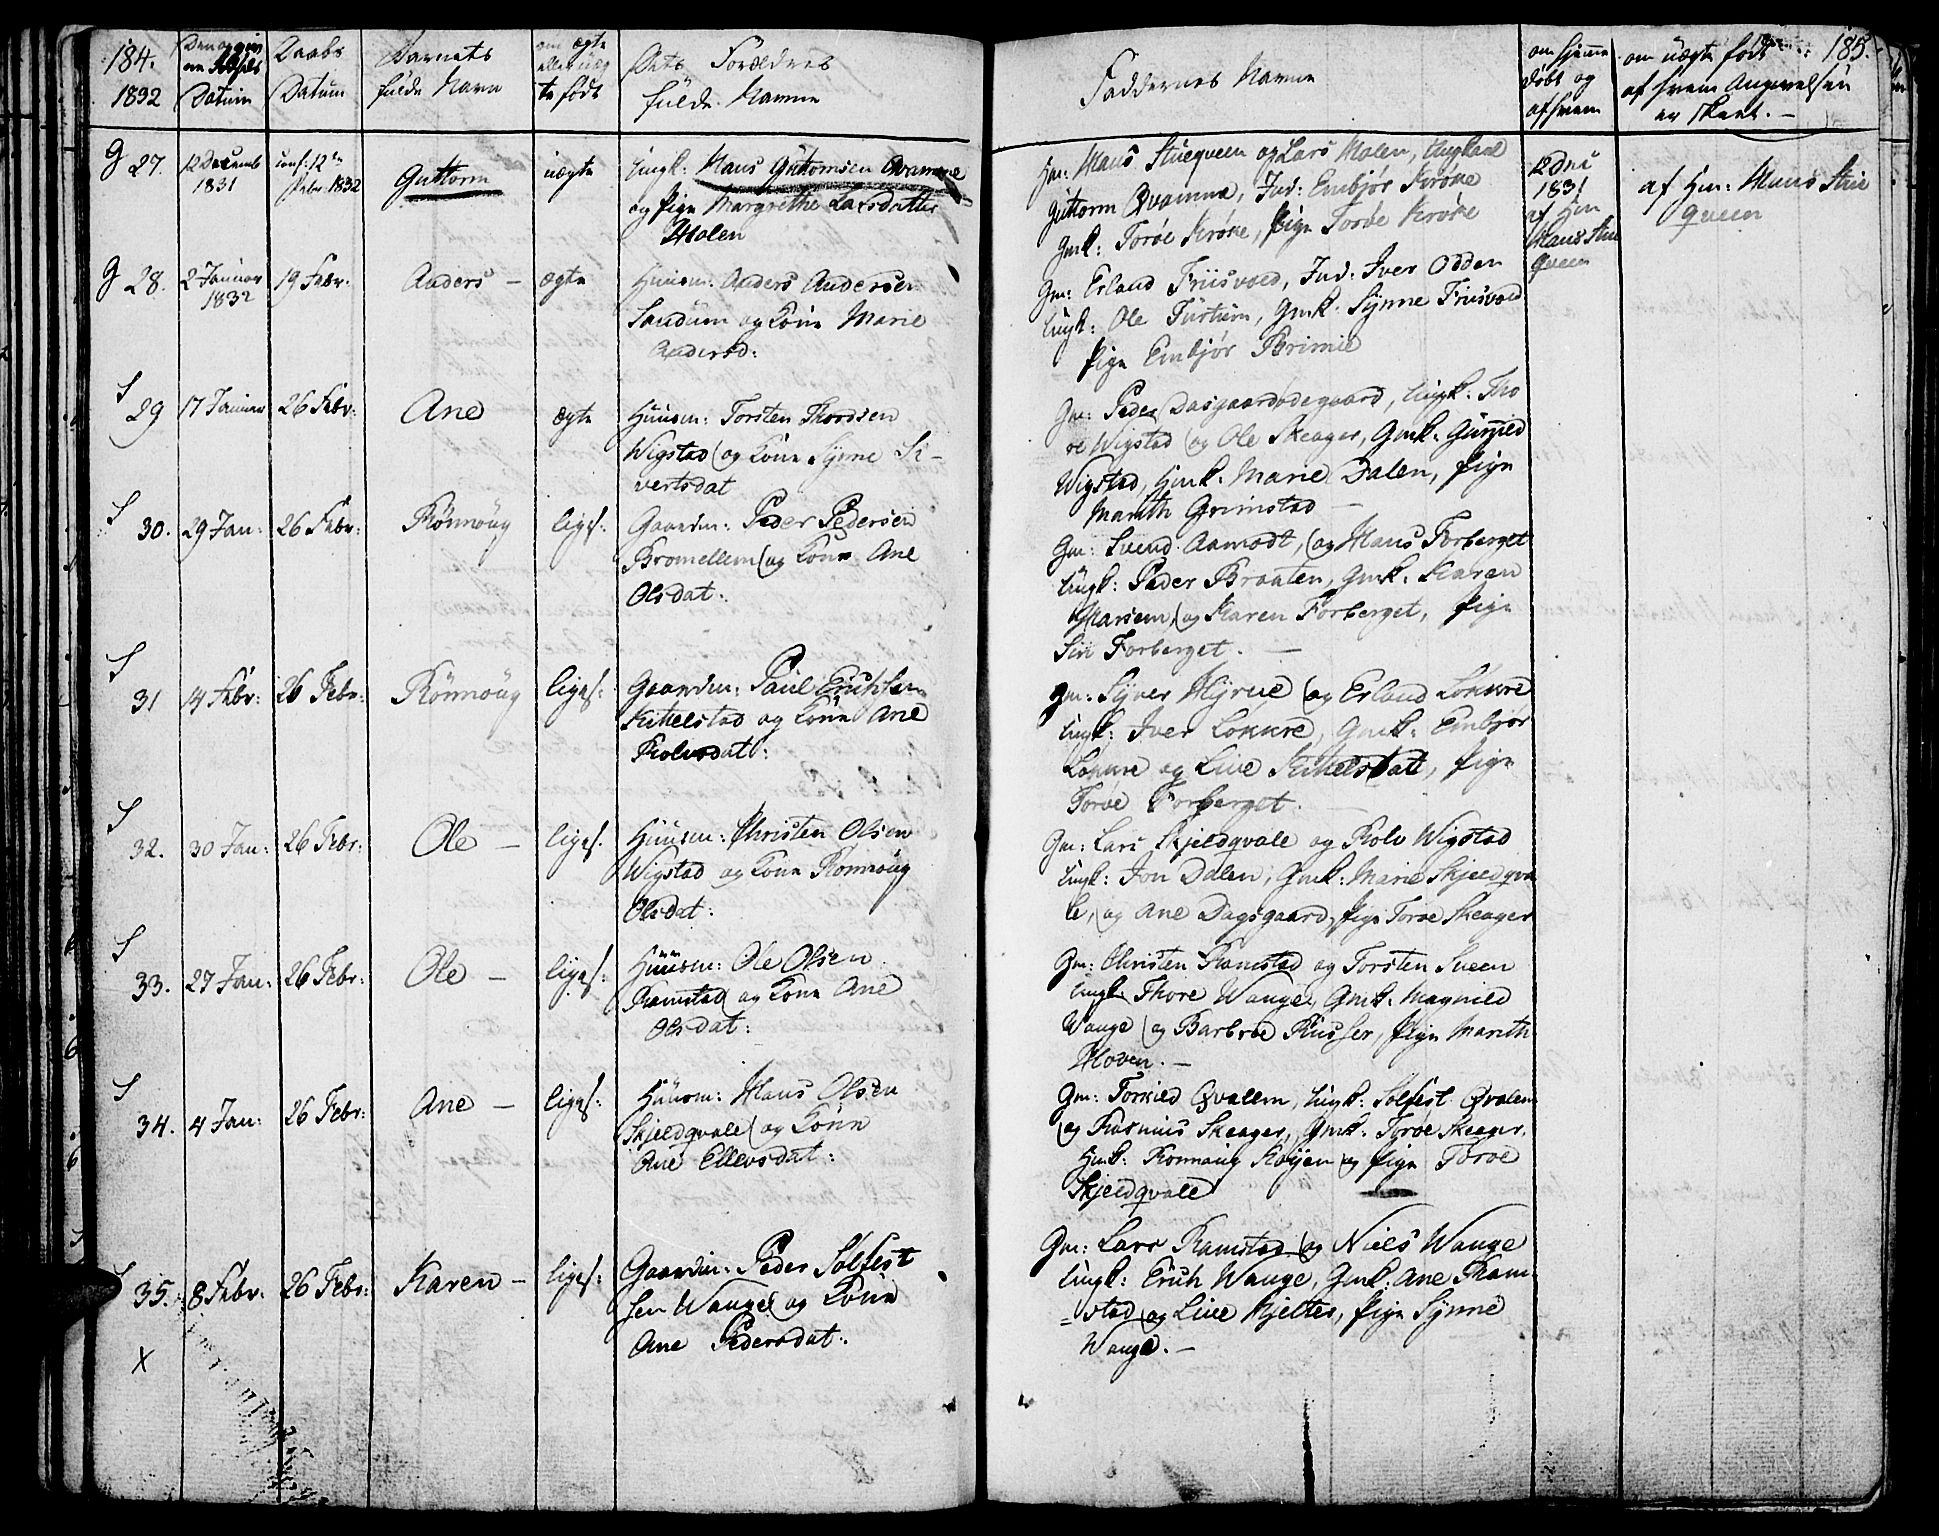 184.
1832
Datum
Daabs
Datum
Barnets
fulde Navn
om ægte
eller uæg
te født
Dets Forældres
fulde Navne
Faddernes Navne
om hjemme
døbt og
af hvem
om uægte født
af hvem Angivelsen
er skeet. –
185.
G 27.
12 Decemb
1831
conf: 12te
Febr. 1832
Guttorm
uægte
Ungk: Hans Guttormsen Qvamme
og Pige Margrethe Larsdatter
Molen
Hm: Hans Stueqveen og Lars Molen, Ungkarl
Guttorm Qvamme, Ind: Embjør Krøke
Gmk: Toroe Krøke, Pige Toroe Krøke
12 Dec
1831
af Hm
Hans Stue
qveen
af Hm: Hans Stue
qveen
G 28.
2 Januar
1832
19 Febr:
Anders –
ægte
Huusm: Anders Andersen
Sandum og Kone Marie
Andersd:
Gm: Erland Friisvold, Ind: Iver Odden
Ungk: Ole Furtum, Gmk: Synne Friisvold
Pige Embjør Brimie
S
29
17 Januar
26 Febr:
Ane
ægte
Huusm: Torsten Thordsen
Wigstad og Kone Synne Si-
vertsdat
Gm: Peder Dasgaardødegaard, Ungk: Tho
re Wigstad og Ole Skeager, Gmk: Gunnild
Wigstad, Hmk: Marie Dalen, Pige
Marith Grimstad –
S
30.
29 Jan:
26 Febr:
Rønnoug
liges:
Gaardm: Peder Pedersen
Bromellem og Kone Ane
Olsdat:
Gm: Svend Aamodt, og Hans Forberget
Ungk: Peder Braaten, Gmk: Karen
Harsem, og Karen Forberget, Pige
Siri Forberget. –
S
31
14 Febr:
26 Febr:
Rønnoug
liges:
Gaardm: Paul Erichsen
Kikelstad og Kone Ane
Rolvsdat:
Gm: Syver Hyrne og Erland Løkkre
Ungk: Iver Løkkre, Gmk: Embjør
Løkkre og Live Kikelstad, Pige
Toroe Forberget.
S
32.
30 Jan:
26 Febr:
Ole –
liges:
Huusm: Christen Olsen
Wigstad og Kone Ronnoug
Olsdat:
Gm: Lars Skjeldqvale og Rolv Wigstad
Ungk: Jon Dalen, Gmk: Marie Skjeldqva
le, og Ane Dagsgaard, Pige Toroe Skeager
S
33.
27 Jan:
26 Febr:
Ole –
liges:
Huusm: Ole Olsen
Ramstad og Kone Ane
Olsdat:
Gm: Christen Ramstad og Torsten Sueen
Ungk: Thore Wange, Gmk: Magnild
Wange og Barbroe Russer, Pige Marith
Hoven. –
S
34.
4 Jan:
26 Febr:
Ane –
liges:
Huusm: Hans Olsen
Skjeldqvale og Kone
Ane Ellevsdat:
Gm: Torkild Qvalem, Ungk: Solfest Qvalem
og Rasmus Skeager, Gmk: Toroe Skeager,
Hmk: Ronnaug Køyen og Pige Toroe
Skjeldqvale
S
35.
8 Febr:
26 Febr:
Karen –
liges:
Gaardm: Peder Solfest
sen Wange og Kone
Ane Pedersdat:
Gm: Lars Ramstad og Niels Wange
Ungk: Erich Wange, Gmk: Ane Ram-
=stad og Live Hjeltes, Pige Synne
Wange. –
X